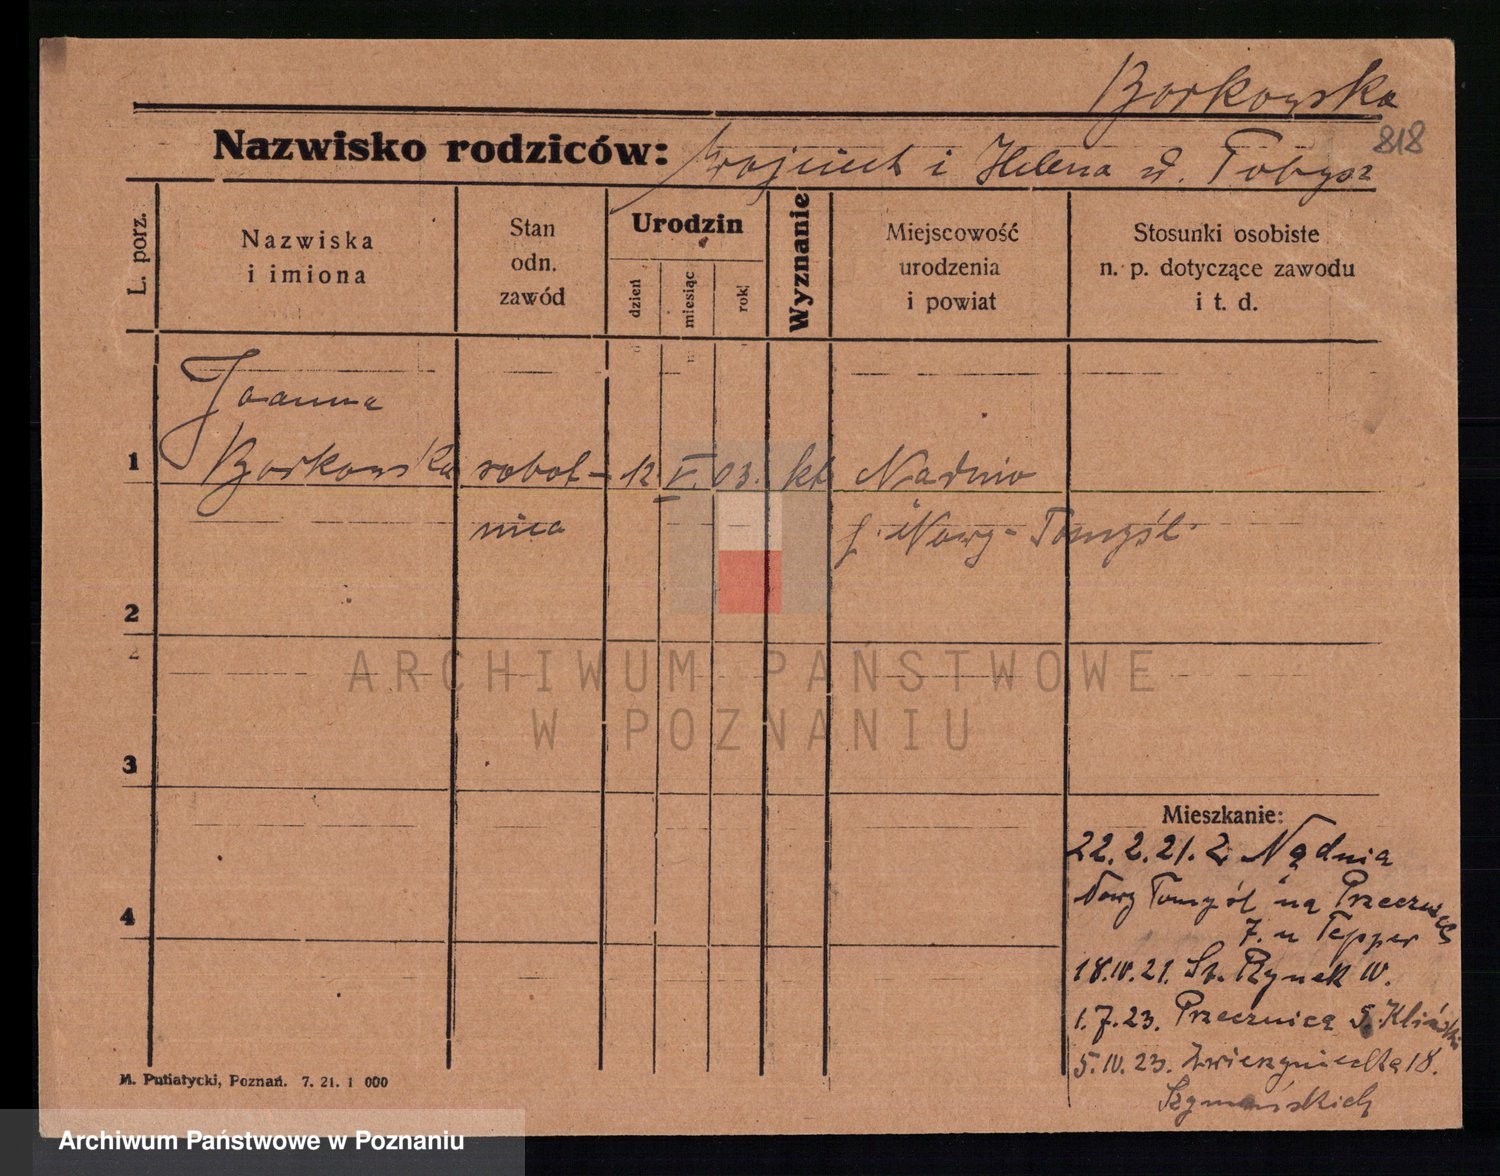 Borkowska
818
Nazwisko rodziców: Wojciech i Helena d. Tobysz
L. porz.
Nazwiska
i imiona
Stan
odn.
zawód
Urodzin
dzień
miesiąc
rok
Wyznanie
Miejscowość
urodzenia
i powiat
Stosunki osobiste
n. p. dotyczące zawodu
i t. d.
Joanna
1 Borkowska robot- 12 V. 03. kt. Nądnia
nica Nowy-Tomyśl
2
3
4
ARCHIWUM PAŃSTWOWE
W POZNANIU
Mieszkanie:
22.2.21. Z Nądnia
Nowy Tomyśl na Przecznica
7. u Tepper
18.IV.21. St. Rynek W.
1.7.23. Przecznica 5. Kliński
5.IV.23. Zwierzyniecka 18.
Szymańskich
M. Putiatycki, Poznań. 7. 21. 1 000
Archiwum Państwowe w Poznaniu